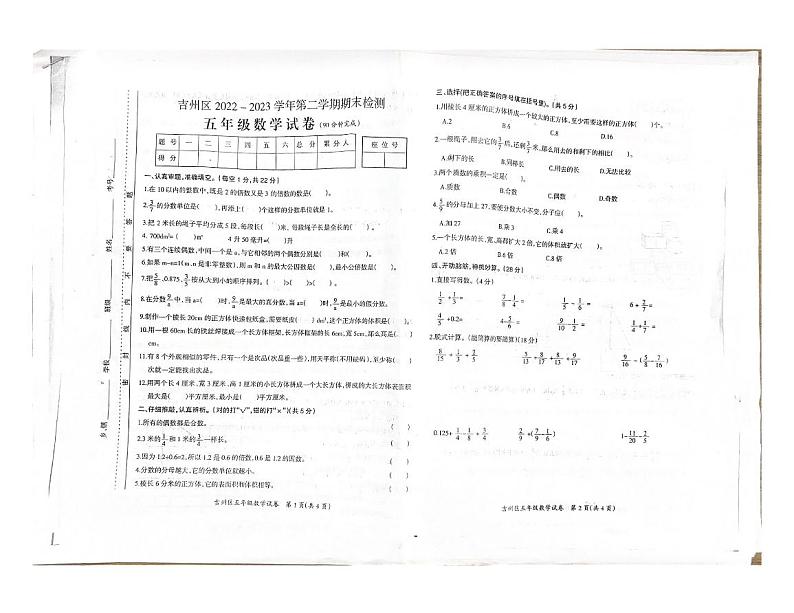 吉州区 2022-2023 学年第二学期期末检测
五年级数学试卷(90分钟完成)
题号 一 二 三 四 五 六 总分 累分人 座位号
得分
一、认真审题,准确填空。(每空1分,共22分)
1.在10以内的整数中,既是2的倍数又是3的倍数的数是( )。
2.3/7的分数单位是( ),再添上( )个这样的分数单位就是1。
3.把2米长的绳子平均分成5段,每段长( )米,每段绳子长是全长的( )。
4. 700dm³=( )m³ 4升50毫升=( )升
5.有三个连续偶数,中间一个是a,与它相邻的两个偶数分别是( )和( )。
6.如果m÷n=1(m、n是非零整数),则m和n的最大公因数是( ),最小公倍数是( )。
7.把5/8、0.875、3/5按从大到小的顺序排列。( )>( )>( )
8.在分数a/9中,当a=( )时,a/9是最大的真分数,当a=( )时,a/9是最小的假分数。
9.制作一个棱长20cm的正方体快递包纸盒,需要纸皮( )dm²,这个正方体的体积是( )。
10.用一根60cm长的铁丝焊接成一个长方体框架,长方体框架的长6cm,宽5cm,那么高是( )
cm。
11.有8个外观相似的零件,只有一个是次品(次品重一些),用天平称(不用砝码),至少称( )
次就一定能找出次品。
12.用两个长4厘米,宽3厘米,高1厘米的小长方体拼成一个大长方体,拼成的大长方体表面积
最大是( )平方厘米,最小是( )平方厘米。
二、仔细推敲,认真辨析。(对的打“√”,错的打“×”)(共5分)
1.所有的偶数都是合数。 ( )
2.3米的1/4和1米的3/4一样长。 ( )
3.因为1.2÷0.6=2,所以1.2是0.6的倍数,0.6是1.2的因数。 ( )
4.分数的分母越大,它的分数单位就越小。 ( )
5.棱长6分米的正方体,它的表面积和体积相等。 ( )
吉州区五年级数学试卷 第1页(共4页)
乡、镇 学校 班级 姓名 考号
密 封 线 内 不 要 答 题
三、选择(把正确答案的序号填在括号里)。(共5分)
1.用棱长4厘米的正方体拼成一个较大的正方体,至少需要这样的正方体( )个。
A.2 B.6 C.8 D.16
2.一根绳子,照去它的3/7后,还剩3/7米,那么用去的和剩下的相比( )
A.剩下的长 B.同样长 C.用去的长 D.无法比较
3.两个质数的乘积一定是( )。
A.质数 B.合数 C.偶数 D.奇数
4.5/9的分母加上27,要使分数大小不变,分子应( )。
A.加27 B.加3 C.乘4 D.乘3
5.一个长方体的长、宽、高都扩大2倍,它的体积就扩大( )。
A.2倍 B.4倍 C.6倍 D.8倍
四、开动脑筋,神机妙算。(28分)
1.直接写得数。(4分)
1/2+1/4= 7/8-1/4= 1/5-1/6= 6+2/7=
4/5+0.2= 4-4/5= 9/10-1/2= 1-3/7=
2.脱式计算。(能简算的要简算)(18分)
8/15+1/3+2/5 5/13+8/17+5/13+9/17 9/16-(5/8-7/16)
0.125+1/4-1/8+3/4 2/9+(7/9-1/6) 1-11/20-2/5
吉州区五年级数学试卷 第2页(共4页)